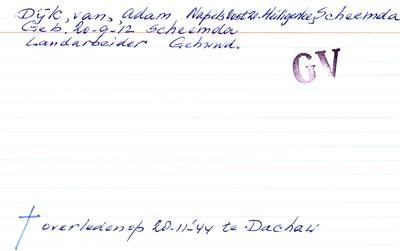 Dijk, van, Adam Heiligerlee, Scheemda
Geb. 20-9-'12 Scheemda
Landarbeider Gehuwd.
GV
overleden op 20-11-'44 te Dachau